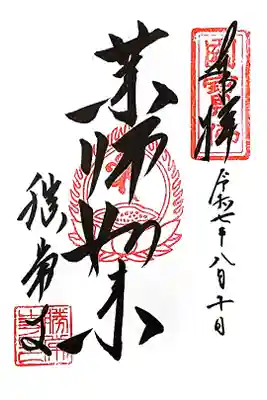 奉拝
令和七年八月十日
薬師如来
勝常寺
勝常
寺印